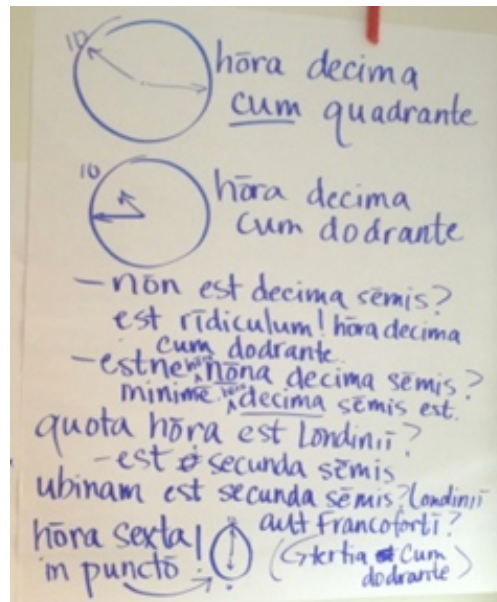 10
hōra decima
cum quadrante
10
hōra decima
cum dodrante
- nōn est decima sēmis?
est rīdiculum! hōra decima
cum dodrante
- estne hōra nōna decima sēmis?
minimē. hōra decima sēmis est.
quota hōra est Londiniī?
- est secunda sēmis
ubinam est secunda sēmis? Londiniī
aut Francofortī?
hōra sexta!
in punctō
tertia cum
dodrante)